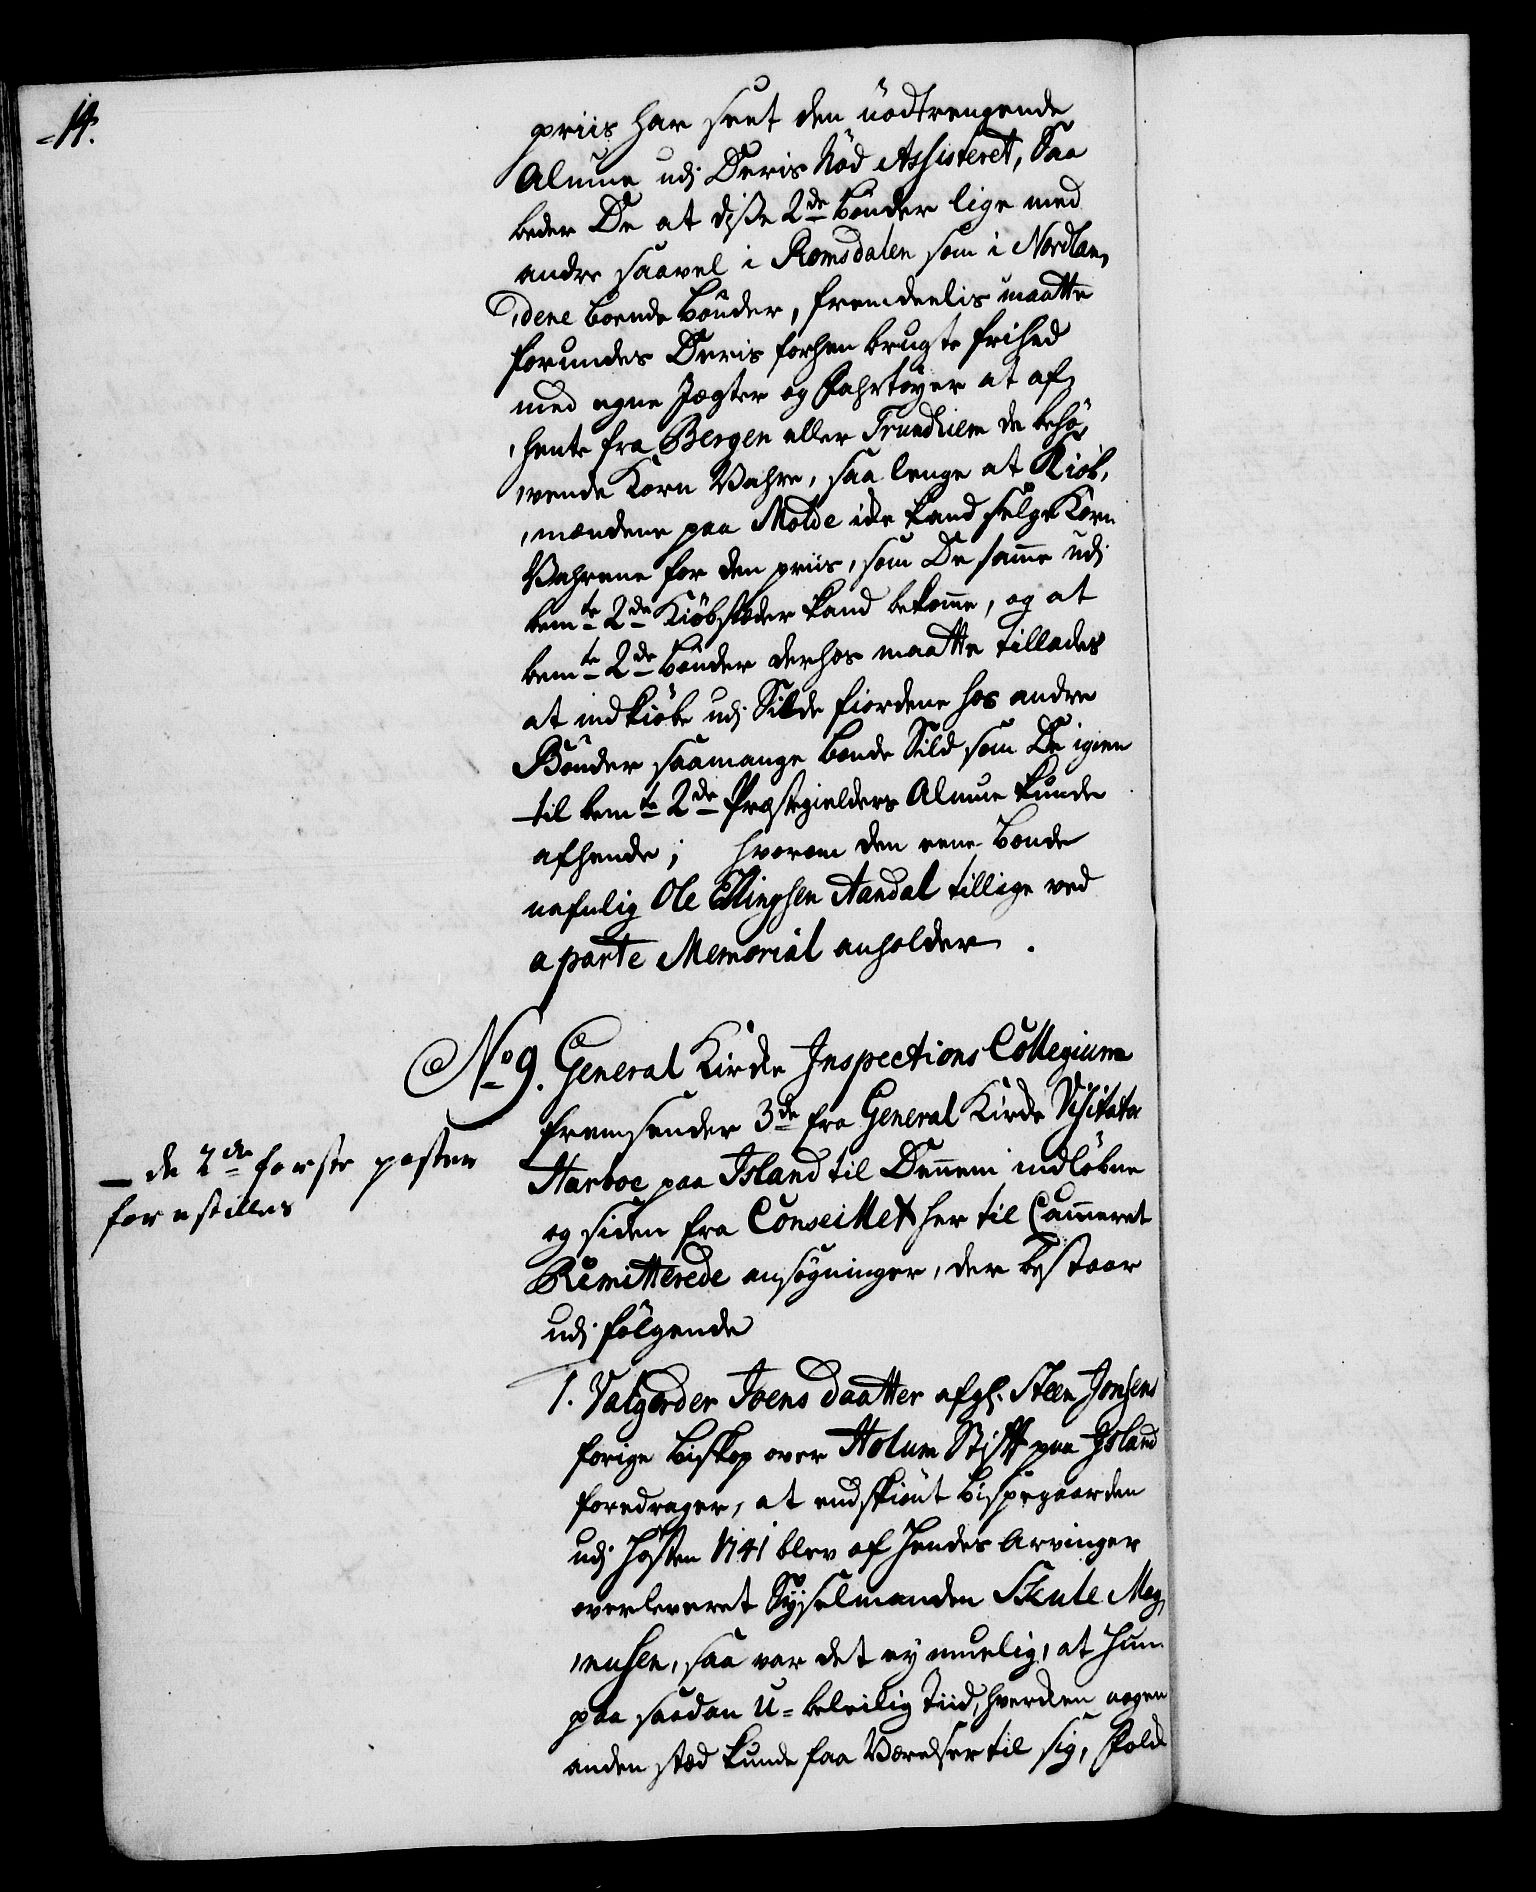 14.
priis har seet den nödtrengende
Almue udj Deris Nöd Assisteret, Saa
beder De at disse 2de bönder lige med
andre saavel i Romsdalen som i Nordlan,
,dene boende bönder, fremdeelis maatte
forundes Deris forhen brugte frihed
med egne Jegter og Fahrtöyer at af,
,hente fra Bergen eller Trundhiem de behö,
,vende Korn Vahre, saa lenge at Kiöb,
,mændene paa Molde icke kand selge Korn
Vahrene for den priis, som De samme udj
bemte 2de Kiöbstæder kand bekomme, og at
bemte 2de bönder derhos maatte tillades
at indkiöbe udj Silde fiordene hos andre
Bönder saamange bonde Sild som De igien
til bemte 2de Præstegielders Almue kunde
afhende; hvorom den eene bonde
nafnlig Ole Ellingsen Aandal tillige ved
a parte Memorial anholder.
No 9. General Kircke Inspections Collegium
fremsender 3de fra General Kircke Visitator
Harboe paa Island til Dennem indløbne
og siden fra Conseillet her til Cammeret
Remitterede ansøgninger, der bestaar
udj følgende
_ de 2de forste poster
forestilles
1. Valgerder Joens daatter afgl. Steen Jonsens
forige biskop over Holum Stift paa Island
foredrager, at endskiönt bispegaarden
udj Høsten 1741 blev af Hendes Arvinger
overleveret Sysselmanden Skule Mag,
,nusen, saa var det ey muelig, at hun
paa saadan U-beleilig Tiid, hverken nogen
anden stæd kunde faa Værelser til sig, Folck